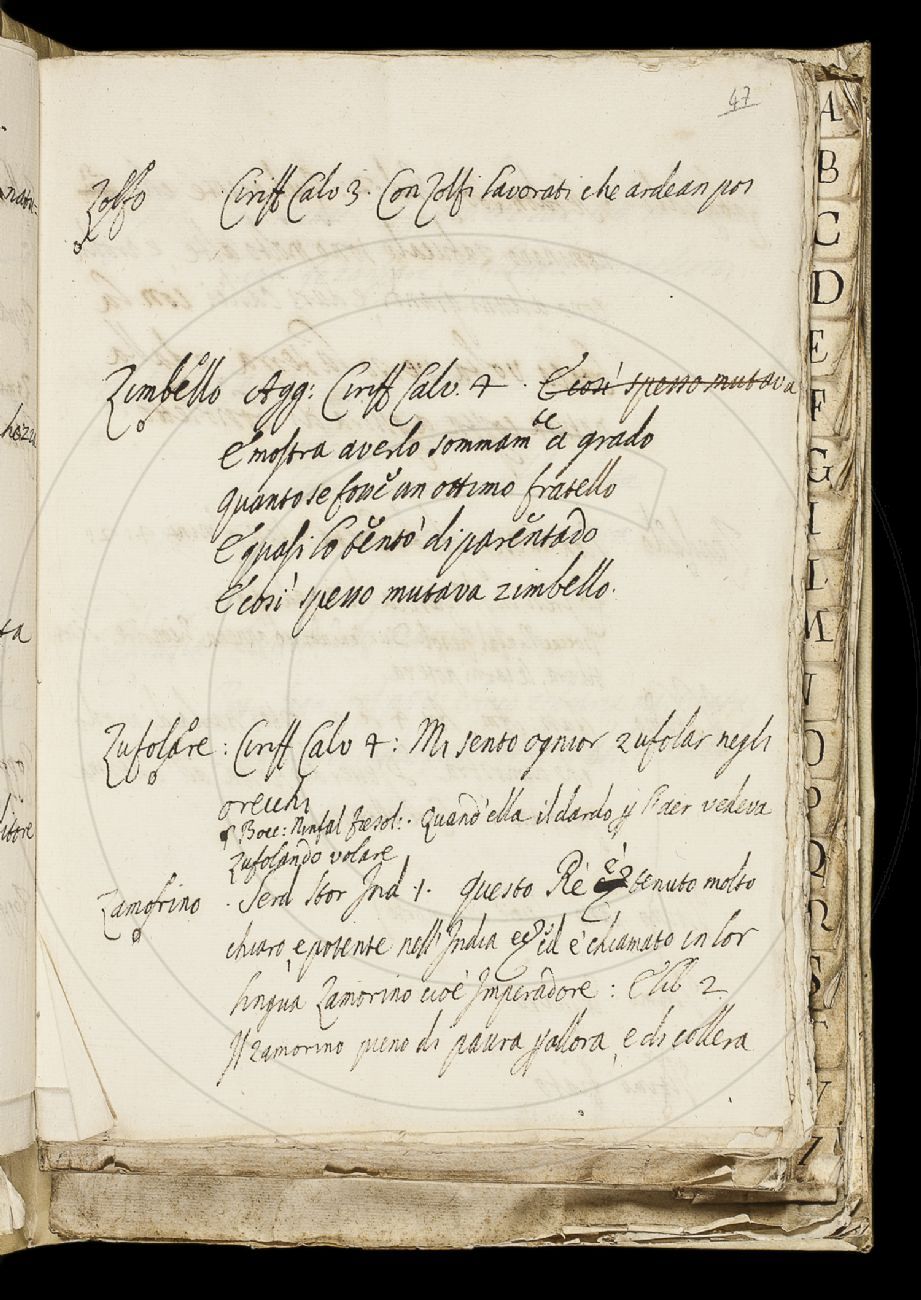 47
Zolfo Ciriff Calv 3. Con Zolfi lavorati che ardean poi
Zimbello Agg: Ciriff Calv. 4. E così spesso mutava
E mostra averlo sommam.te a grado
quanto se fosse un ottimo fratello
E quasi lo tentò di parentado
E così spesso mutava zimbello.
Zufolare: Ciriff Calv 4: Mi sento ognior zufolar negli
orecchi
Bocc: Ninfal fiesol: Quand' ella il dardo p l'aer vedeva
Zufolando volare
Zamorino. Serd Stor Ind 1. questo Re è tenuto molto
chiaro, e potente nell' India ed è chiamato in lor
lingua Zamorino cioè Imperadore: E lib 2.
Il zamorino pieno di paura p allora, e di collera
A
B
C
D
E
F
G
I
L
M
N
O
P
Q
R
S
T
V
Z